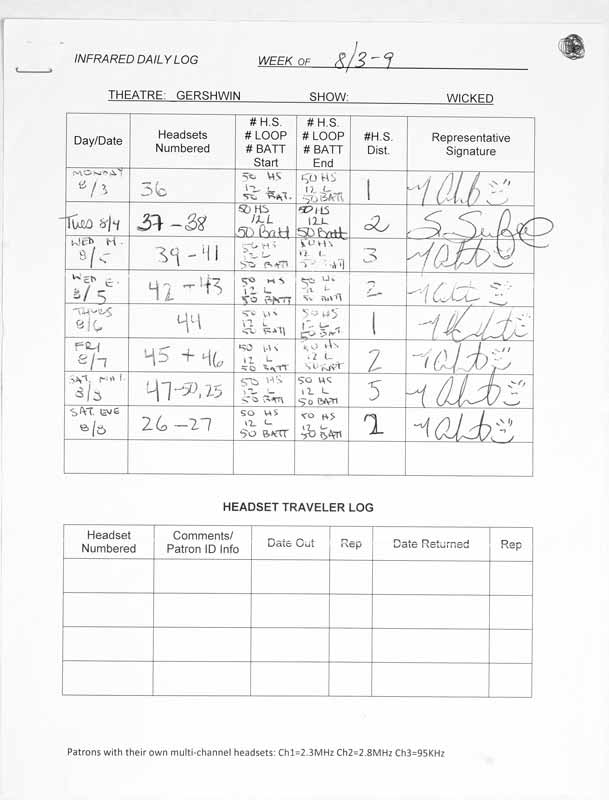 INFRARED DAILY LOG WEEK OF 8/3-9
THEATRE: GERSHWIN SHOW: WICKED
Day/Date Headsets Numbered # H.S. # LOOP # BATT Start # H.S. # LOOP # BATT End #H.S. Dist. Representative Signature
MONDAY 8/3 36 50 HS 12 L 50 BAT. 50 HS 12 L 50 BATT 1
Tues 8/4 37-38 50 HS 12 L 50 Batt 50 HS 12 L 50 Batt 2
WED M. 8/5 39-41 50 HS 12 L 50 BATT 50 HS 12 L 50 BATT 3
WED E. 8/5 42-43 50 HS 12 L 50 BATT 50 HS 12 L 50 BATT 2
THURS 8/6 44 50 HS 12 L 50 BATT 50 HS 12 L 50 BAT 1
FRI 8/7 45 + 46 50 HS 12 L 50 BATT 50 HS 12 L 50 BATT 2
SAT. MAT. 8/8 47-50,25 50 HS 12 L 50 BATT 50 HS 12 L 50 BATT 5
SAT. EVE 8/8 26-27 50 HS 12 L 50 BATT 50 HS 12 L 50 BATT 2
HEADSET TRAVELER LOG
Headset Numbered Comments/ Patron ID Info Date Out Rep Date Returned Rep
Patrons with their own multi-channel headsets: Ch1=2.3MHz Ch2=2.8MHz Ch3=95KHz